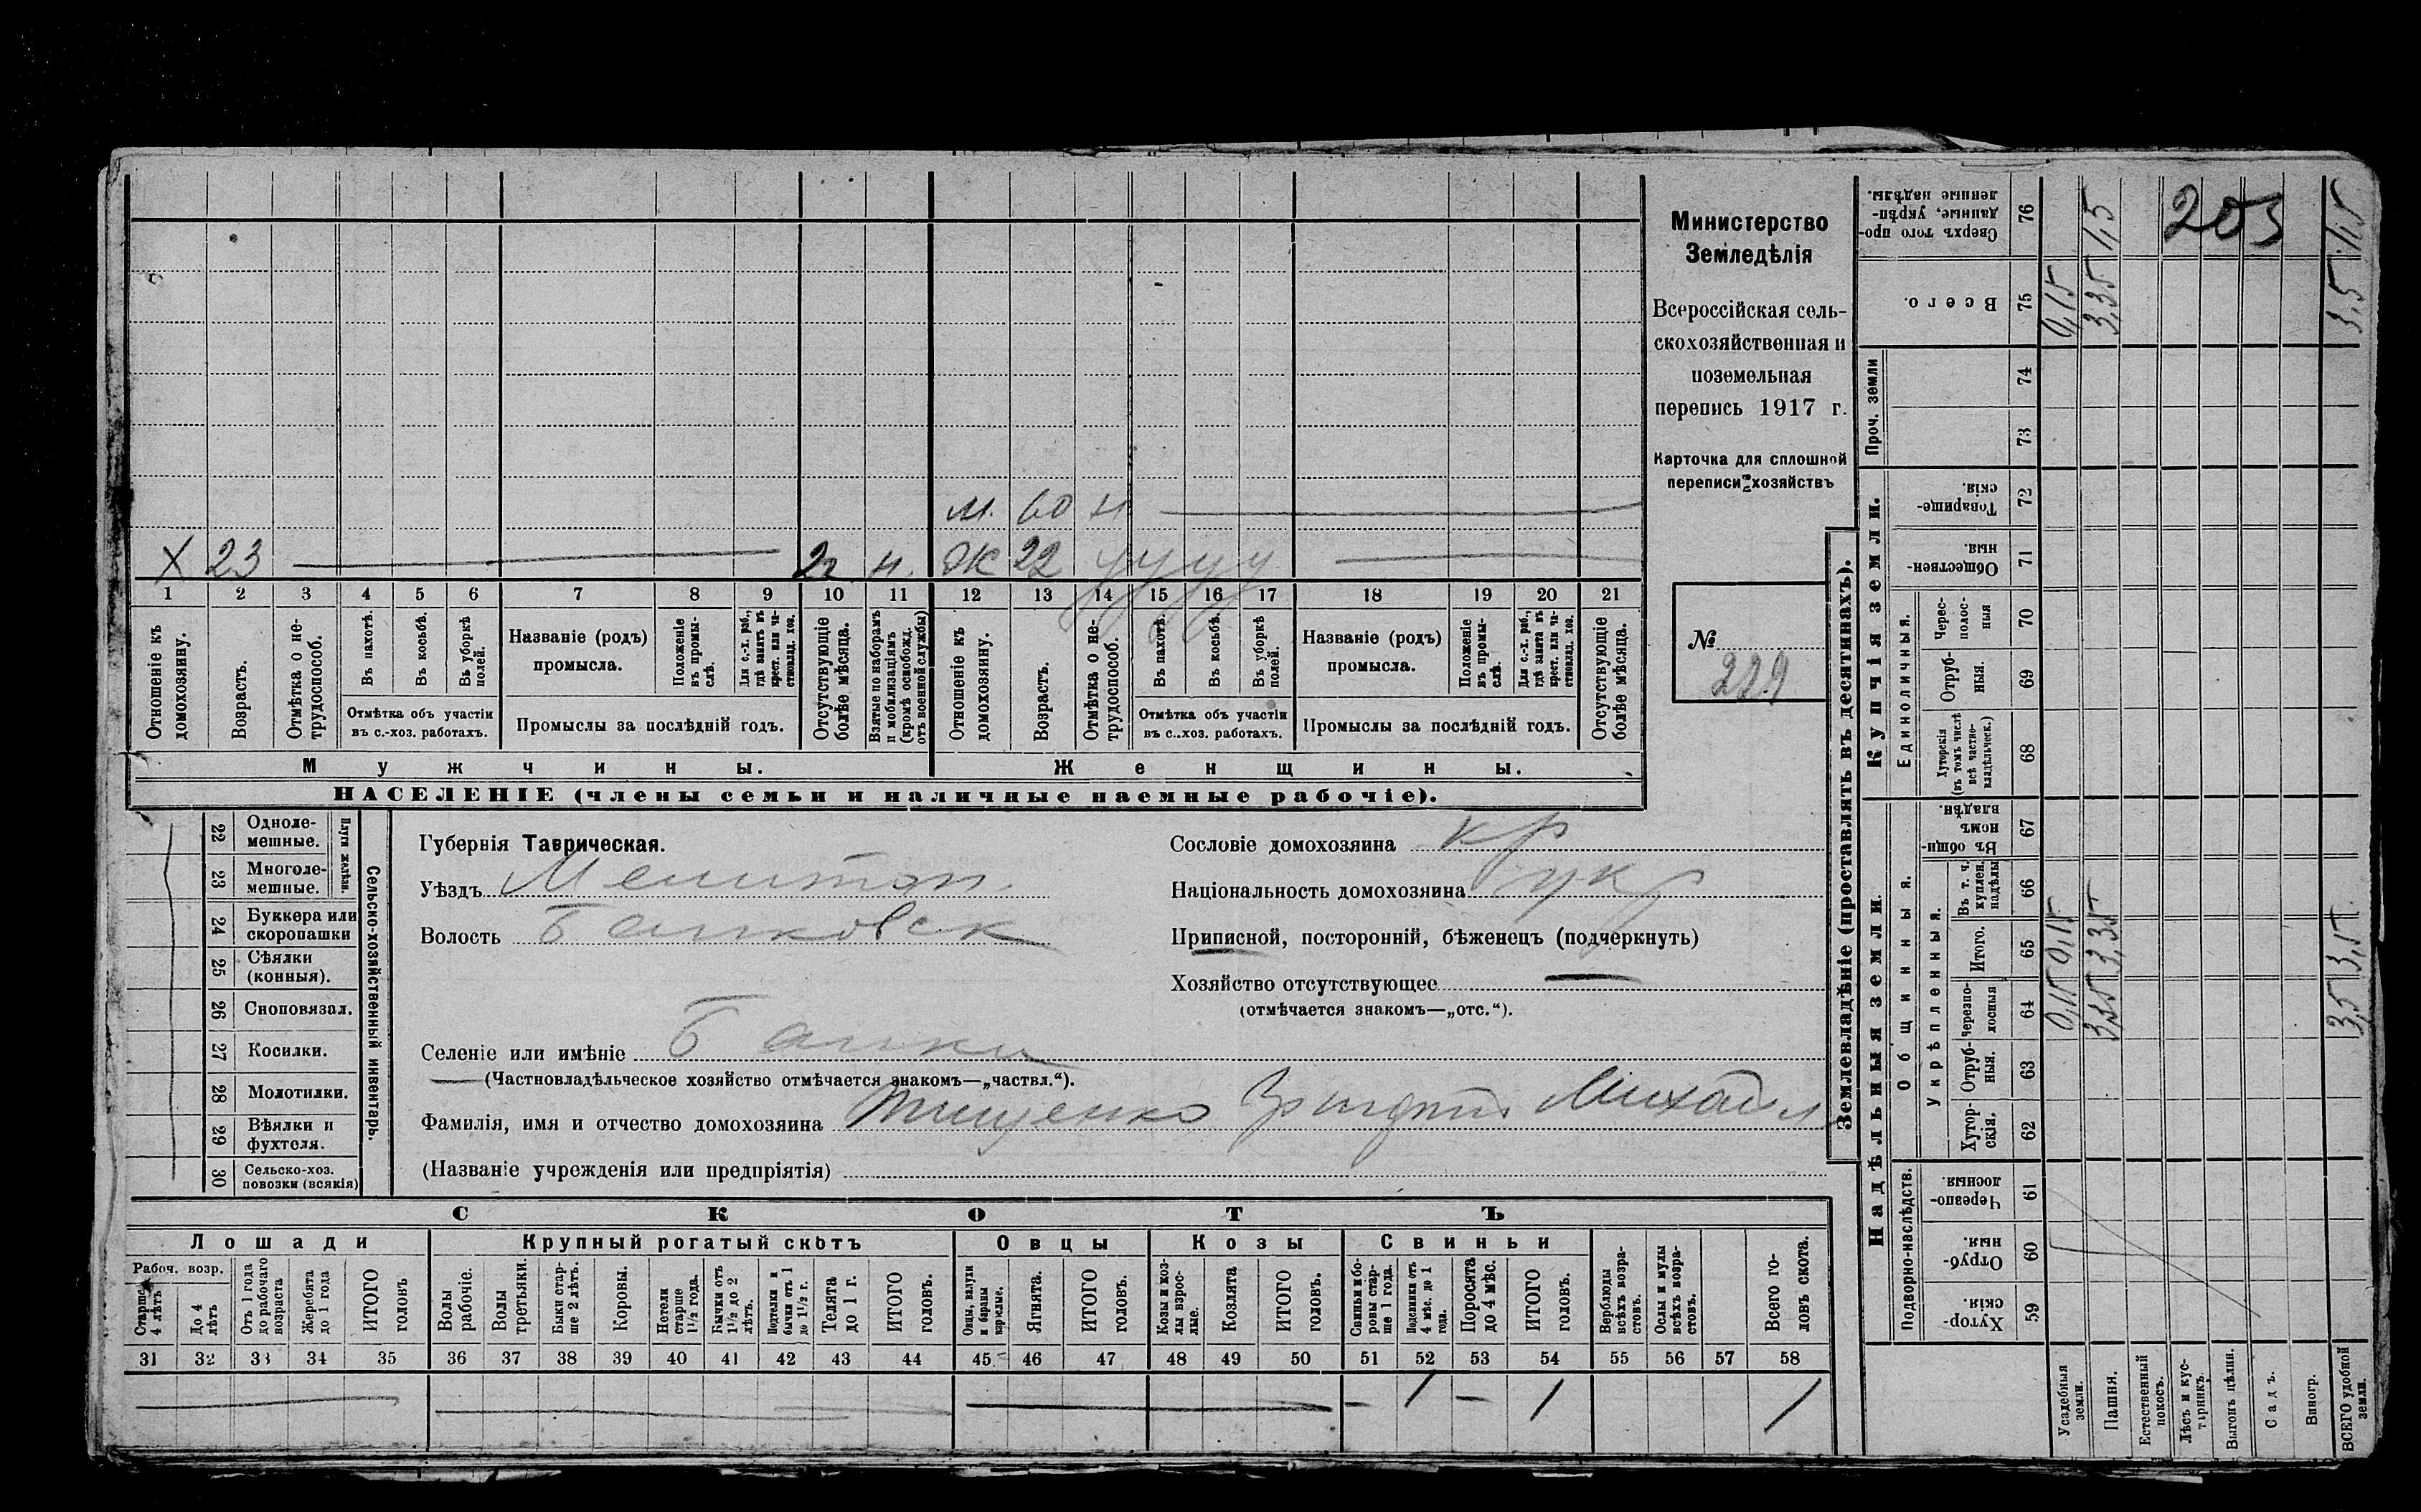 Министерство
Земледѣлія
Всероссійская сель-
скохозяйственная и
поземельная
перепись 1917 г.
Карточка для сплошной
переписи хозяйствъ
№
229
м. 60 н
Х 23 2 н. ж 22 у у у у
1 2 3 4 5 6 7 8 9 10 11 12 13 14 15 16 17 18 19 20 21
Отношеніе къ домохозяину.
Возрастъ.
Отмѣтка о не-трудоспособ.
Въ пахотѣ.
Въ косьбѣ.
Въ уборкѣ полей.
Отмѣтка объ участіи
въ с.-хоз. работахъ.
Названіе (родъ)
промысла.
Положеніе въ промы-слѣ.
Для с.-х. раб., гдѣ занятъ въ крест. или ча-стновлад. хоз.
Промыслы за послѣдній годъ.
Отсутствующіе болѣе мѣсяца.
Взятые по наборамъ и мобилизаціямъ (кромѣ освобожд. отъ военной службы)
Отношеніе къ домохозяину.
Возрастъ.
Отмѣтка о не-трудоспособ.
Въ пахотѣ.
Въ косьбѣ.
Въ уборкѣ полей.
Отмѣтка объ участіи
въ с.-хоз. работахъ.
Названіе (родъ)
промысла.
Положеніе въ промы-слѣ.
Для с.-х. раб., гдѣ занята въ крест. или ча-стновлад. хоз.
Промыслы за послѣдній годъ.
Отсутствующіе болѣе мѣсяца.
Мужчины. Женщины.
НАСЕЛЕНІЕ (члены семьи и наличные наемные рабочіе).
Сельско-хозяйственный инвентарь.
Плуги желѣзн.
22 Однолемешные.
23 Многоле-мешные.
24 Буккера или скоропашки
25 Сѣялки (конныя).
26 Сноповязал.
27 Косилки.
28 Молотилки.
29 Вѣялки и фухтеля.
30 Сельско-хоз. повозки (всякія)
Губернія Таврическая.
Уѣздъ Мелитоп.
Волость Балковск
Селеніе или имѣніе Балки
(Частновладѣльческое хозяйство отмѣчается знакомъ—„частвл.“).
Фамилія, имя и отчество домохозяина Тищенко Михайл
(Названіе учрежденія или предпріятія)
Сословіе домохозяина кр
Національность домохозяина укр
Приписной, посторонній, бѣженецъ (подчеркнуть)
Хозяйство отсутствующее
(отмѣчается знакомъ—„отс.“).
СКОТЪ
Лошади Крупный рогатый скотъ Овцы Козы Свиньи
Рабоч. возр.
Старше 4 лѣтъ
До 4 лѣтъ
Отъ 1 года до рабочаго возраста
Жеребята до 1 года
ИТОГО головъ
Волы рабочіе.
Волы третьяки.
Быки стар-ше 2 лѣтъ.
Коровы.
Нетели старше 1½ года.
Бычки отъ 1½ до 2 лѣтъ.
Подтелки и бычки отъ 1 до 1½ г.
Телята до 1 г.
ИТОГО головъ.
Овцы, валухи и бараны взрослые.
Ягнята.
ИТОГО головъ.
Козы и коз-лы взрос-лые.
Козлята
ИТОГО головъ.
Свиньи и бо-ровы стар-ше 1 года.
Подсвинки отъ 4 мѣс. до 1 года.
Поросята до 4 мѣс.
ИТОГО головъ.
Верблюды всѣхъ возра-стовъ.
Ослы и мулы всѣхъ возра-стовъ.
Всего го-ловъ скота.
31 32 33 34 35 36 37 38 39 40 41 42 43 44 45 46 47 48 49 50 51 52 53 54 55 56 57 58
— 1 — 1 1
Землевладѣніе (проставлять въ десятинахъ).
Надѣльныя земли. Купчія земли. Проч. земли
Подворно-наслѣдств.
Общинныя.
Укрѣпленныя.
Единоличныя.
Хутор-скія. 59
Отруб-ныя. 60
Черезпо-лосныя 61
Хутор-скія. 62
Отруб-ныя. 63
Черезпо-лосныя 64
Итого. 65
Въ т. ч. куплен. надѣлы 66
Въ общи-номъ владѣн. 67
Хуторскія (въ томъ числѣ всѣ частно-владѣльческ.) 68
Отруб-ныя. 69
Черес-полос-ныя 70
Обществен-ныя. 71
Товарище-скія. 72
73
74
Всего. 75
Сверхъ того про-данные, укрѣп-ленные надѣлы. 76
Усадебныя земли. 0,15 0,15 0,15
Пашня. 3,35 3,35 3,35 1,5
Естественный покосъ.
Лѣсъ и кус-тарникъ.
Выгонъ цѣлин.
Садъ.
Виногр.
ВСЕГО удобной земли. 3,5 3,5 3,5 1,5
203